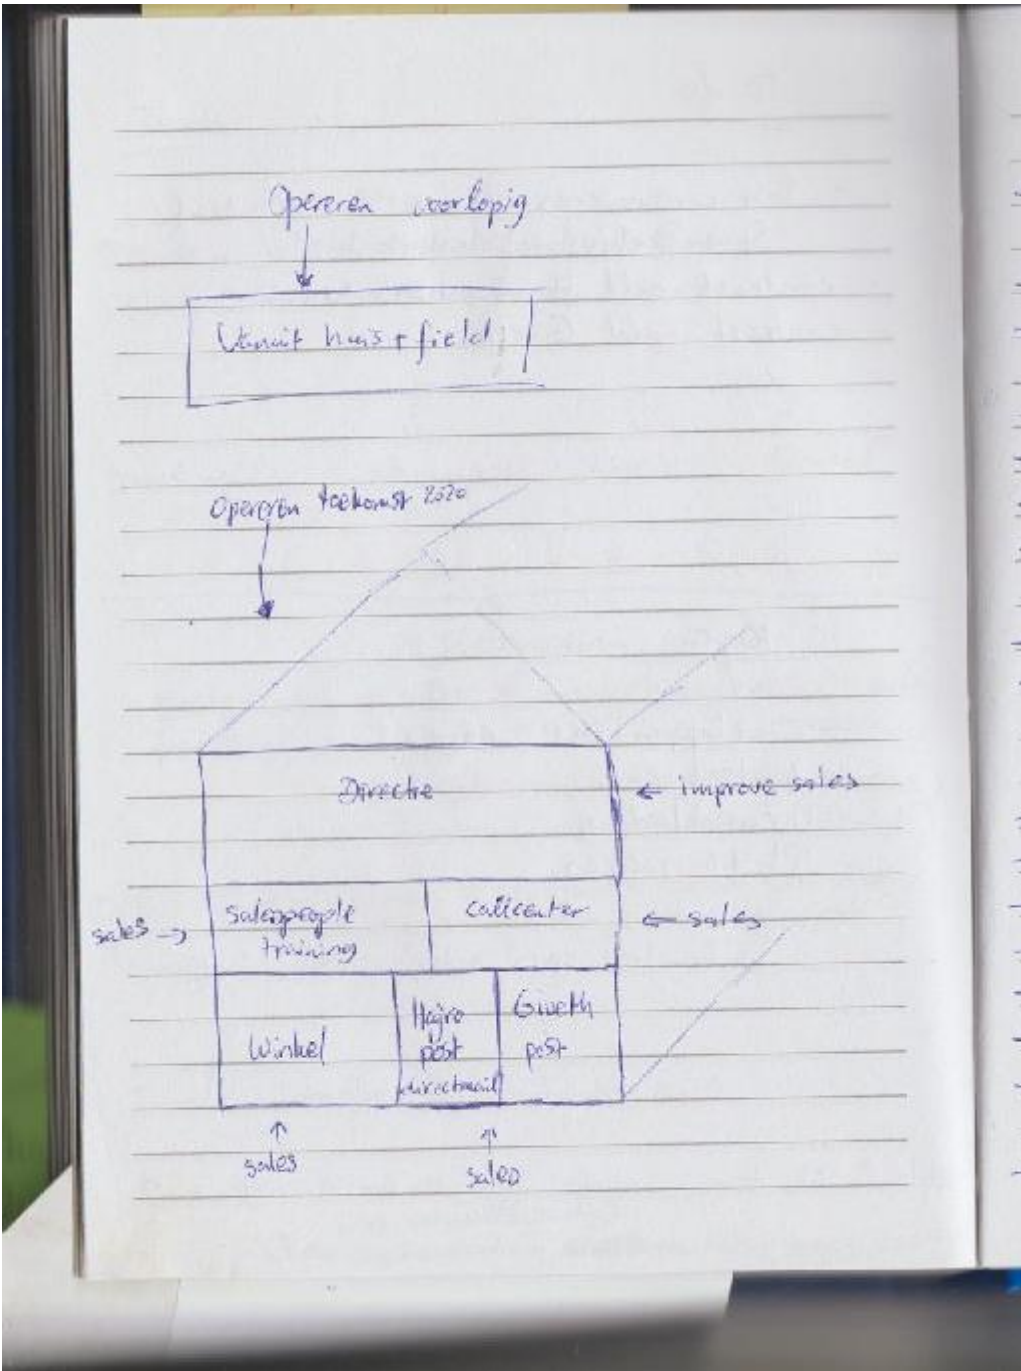 Opereren voorlopig
Vanuit huis + field
Opereren toekomst 2020
Directie
← improve sales
sales →
salespeople
training
callcenter
← sales
Winkel
Hajro
post
directmail
post
↑
sales
↑
sales